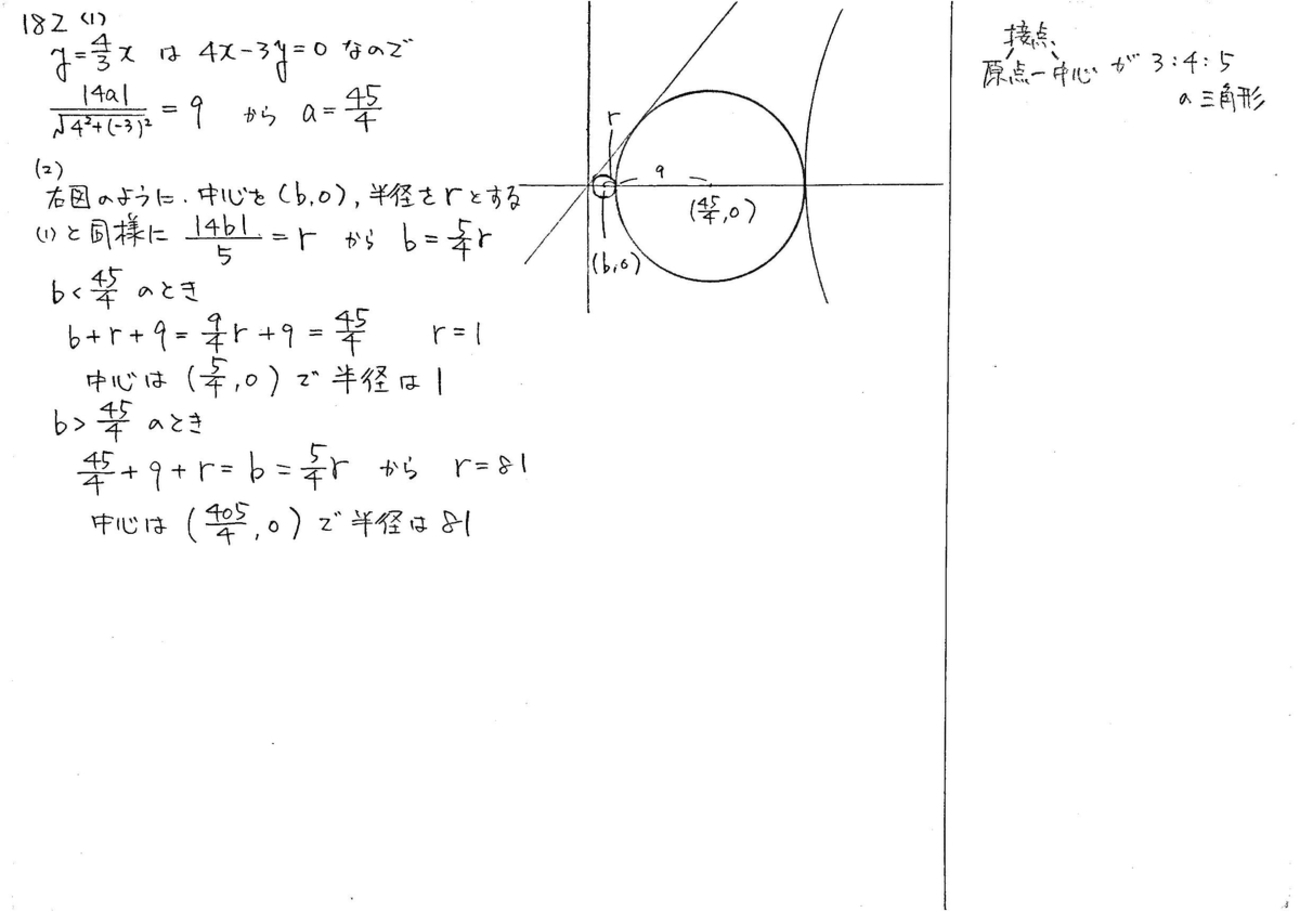 182 (1)
y=4/3 x は 4x-3y=0 なので
|4a|/√(4²+(-3)²) = 9 から a=45/4
(2)
右図のように、中心を (b,0), 半径を r とする
(1) と同様に |4b|/5 = r から b = 5/4 r
b< 45/4 のとき
b+r+9 = 9/4 r +9 = 45/4 r=1
中心は (5/4, 0) で 半径は 1
b> 45/4 のとき
45/4 + 9 + r = b = 5/4 r から r=81
中心は (405/4, 0) で 半径は 81
r
9
(45/4, 0)
(b,0)
接点
原点-中心 が 3:4:5
の三角形